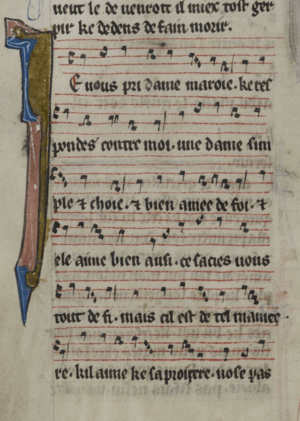 ueut le de uenroit il miex tost ger
pir ke dedens de fain morir.
Je uous pri dame maroie. ke res
pondes contre moi. une dame sim
ple ⁊ choie. ⁊ bien amee de foi. ⁊
ele aime bien ausi. ce sacies uous
tout de fi. mais cil est de tel maniere
re. kil aime ke sa proiere. nose pas